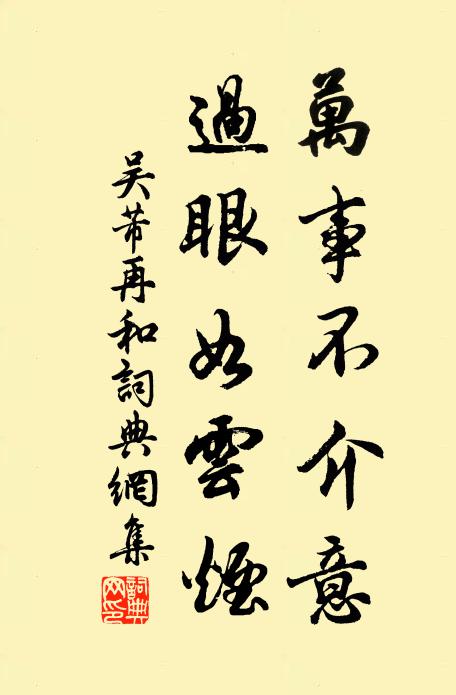 萬事不介意
過眼如雲煙
吳芾再和詞典網集
詞典网印